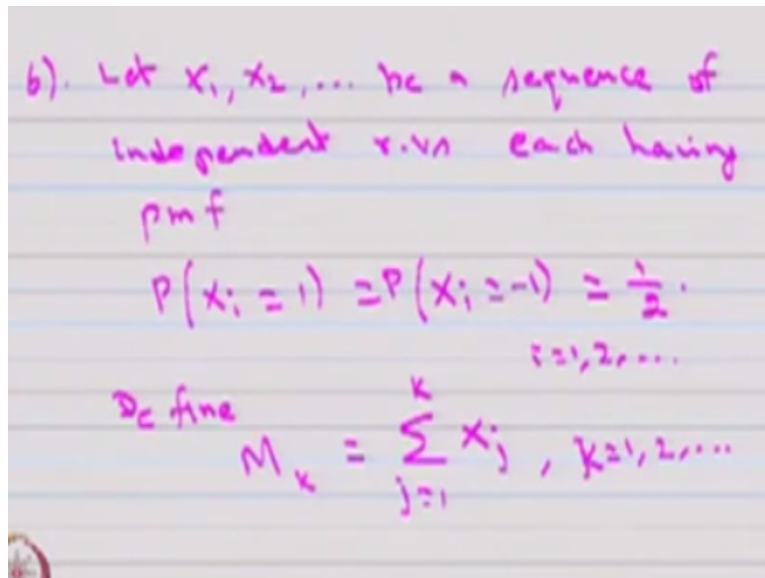 6). Let X₁, X₂, ... be a sequence of
independent r.vs each having
pmf
P(Xᵢ = 1) = P(Xᵢ = -1) = 1/2.
i=1,2,....
Define M_k = ∑_{j=1}^{k} X_j , k=1,2,....